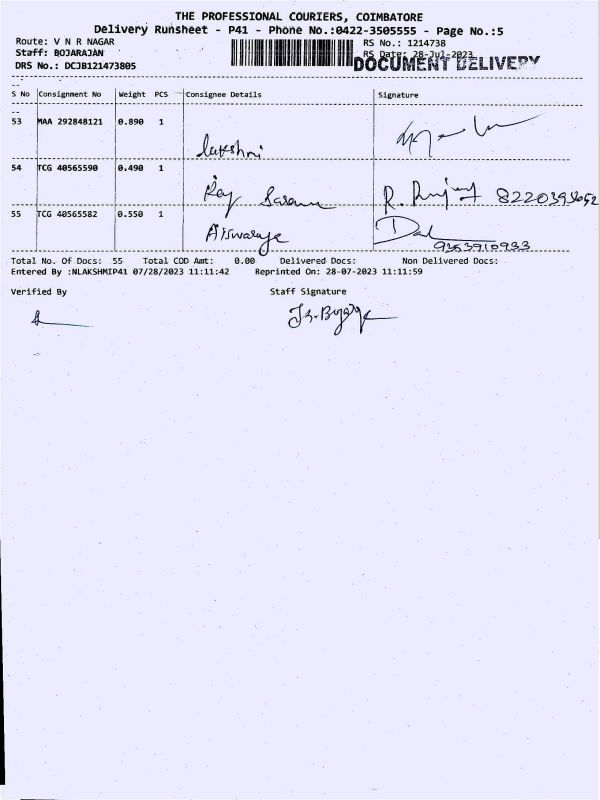 THE PROFESSIONAL COURIERS, COIMBATORE
Delivery Runsheet - P41 - Phone No.:0422-3505555 - Page No.:5
Route: V N R NAGAR RS No.: 1214738
Staff: BOJARAJAN RS Date: 28-Jul-2023
DRS No.: DCJB121473805 DOCUMENT DELIVERY
S No Consignment No Weight PCS Consignee Details Signature
53 MAA 292848121 0.890 1
Lakshmi
54 TCG 40565590 0.490 1
Raj 8220393052
55 TCG 40565582 0.550 1
Aiswarya
9363910933
Total No. Of Docs: 55 Total COD Amt: 0.00 Delivered Docs: Non Delivered Docs:
Entered By :NLAKSHMIP41 07/28/2023 11:11:42 Reprinted On: 28-07-2023 11:11:59
Verified By Staff Signature